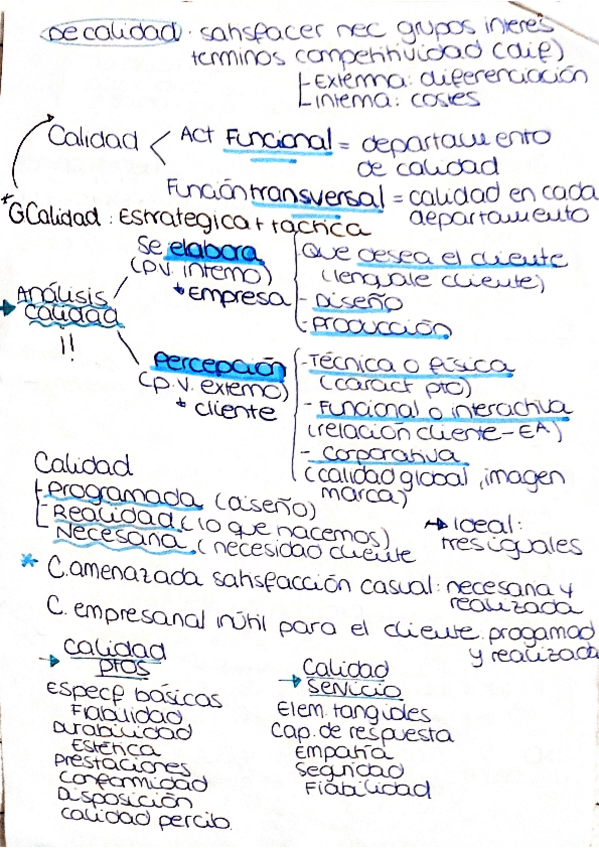 De calidad: satisfacer nec grupos interes
terminos competitividad (dif)
Externa: diferenciación
interna: costes
Calidad < ACT Funcional = departamento
de calidad
Función transversal = calidad en cada
departamento
*GCalidad: Estrategica + tactica
Se elabora
(p.v. interno)
Empresa
- Que desea el cliente
(lenguaje cliente)
- Diseño
- Producción
→ Análisis
calidad
!!
Percepción
(p.v. externo)
cliente
- Técnica o física
(caract pto)
- Funcional o interactiva
(relación cliente - EA)
- corporativa
(calidad global, imagen
marca)
Calidad
- Programada (diseño)
- Realidad (lo que hacemos)
- Necesaria (necesidad cliente
→ ideal:
tres iguales
* C. amenazada satisfacción casual: necesaria y
realizada
C. empresarial inútil para el cliente: progamad
y realizada
→ Calidad
ptos
Especf básicas
Fiabilidad
Durabilidad
Estética
Prestaciones
Conformidad
Disposición
calidad percib.
→ Calidad
servicio
Elem. tangibles
Cap. de respuesta
Empatia
Seguridad
Fiabilidad